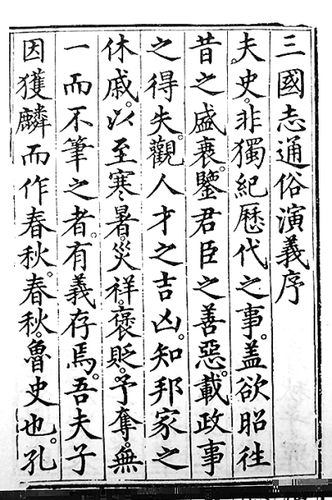 三國志通俗演義序
夫史。非獨紀歷代之事。蓋欲昭徃
昔之盛衰。鑒君臣之善惡。載政事
之得失。觀人才之吉凶。知邦家之
休戚。以至寒暑。災祥。褒貶。予奪。無
一而不筆之者。有義存焉。吾夫子
因獲麟而作春秋。春秋。魯史也。孔